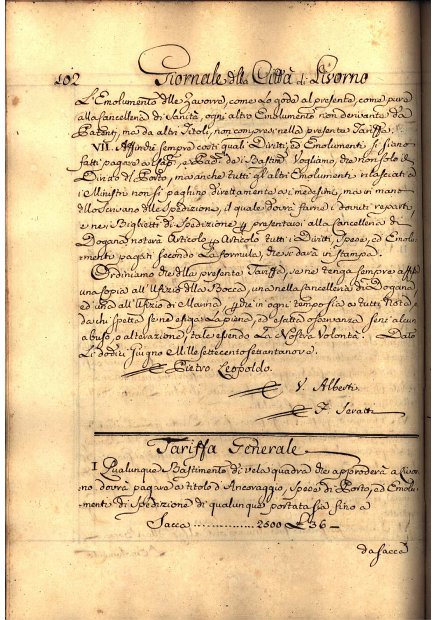 102 Giornale della Città di Livorno
L'Emolumento delle Zavorre, come Lo gode al presente, come pure
alla Cancelleria di Sanità, ogni altro Emolumento non derivante da
Patenti, ma da altri Titoli, non compresi nella presente Tariffa.
VII. Affinchè sempre costi quali Diritti, ed Emolumenti si siano
fatti pagare a i e Padroni da i Bastimenti Vogliamo, che non solo il
Diritto del Porto, ma anche tutti gl'altri Emolumenti rilasciati ad
i Ministri non si paghino direttamente a i medesimi, ma in mano
dello Scrivano delle Spedizione, il quale dovrà farne i dovuti reparti,
e ne i Biglietti di Spedizione p presentarsi alla Cancelleria di
Dogana noterà Articolo p Articolo tutti i Diritti, Spese, ed Emolu-
menti pagati secondo La formula, che si darà in stampa.
Ordiniamo che della presente Tariffa, se ne tenga sempre affissa
una Copia all'Ufizio della Bocca, una nella Cancelleria di Dogana,
ed una all'Ufizio di Marina, p che in ogni tempo sia a tutti Nota e
da chi spetta se ne esiga La piena, ed esatta osservanza senz'alcun
abuso, o alterazione, tale essendo La Nostra Volontà. Dato
Li dodici Giugno Mille settecento settantanove.
Pietro Leopoldo.
V. Alberti
F. Seratti
Tariffa Generale
I Qualunque Bastimento di vela quadra che approderà a Livor-
no dovrà pagare a titolo d'Ancoraggio, Spese di Porto, ed Emolu-
menti di Spedizione di qualunque portata sia fino a
Sacca .............. 2500 £ 36 -
da Sacca